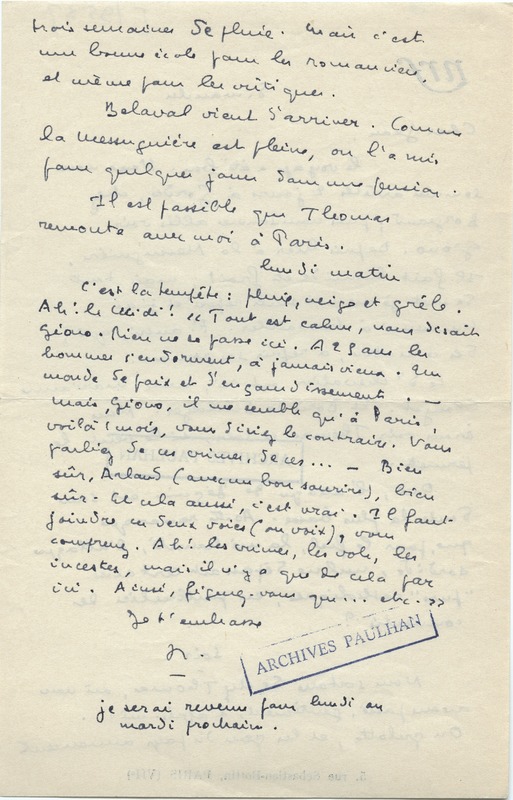 trois semaines de pluie. Mais c'est
une bonne école pour les romanciers,
et même pour les critiques.
Belaval vient d'arriver. Comme
la Messuguière est pleine, on l'a mis
pour quelques jours dans une pension.
Il est possible que Thomas
remonte avec moi à Paris.
lundi matin
C'est la tempête : pluie, neige et grêle.
Ah! le Midi! "Tout est calme, nous disait
Giono. Rien ne se passe ici. A 25 ans les
hommes s'endorment, à jamais vieux. Un
monde de paix et d'engourdissement. —
mais, Giono, il me semble qu'à Paris,
voilà 1 mois, vous disiez le contraire. Vous
parliez de ces crimes, de ces... — Bien
sûr, Arland (avec un bon sourire), bien
sûr. Et cela aussi, c'est vrai. Il faut
joindre ces deux voies (ou voix), vous
comprenez. Ah! les crimes, les vols, les
incestes, mais il n'y a que de cela par
ici. Ainsi, figurez-vous que... etc. "
Je t'embrasse
ARCHIVES PAULHAN
je serai revenu pour lundi ou
mardi prochain.
5, rue Sébastien-Bottin, PARIS (VIIe)